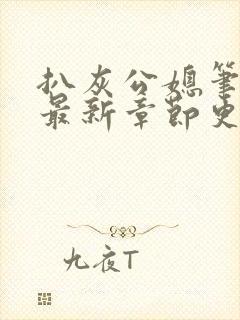 扒灰公媳筆
最新章節史
九夜T